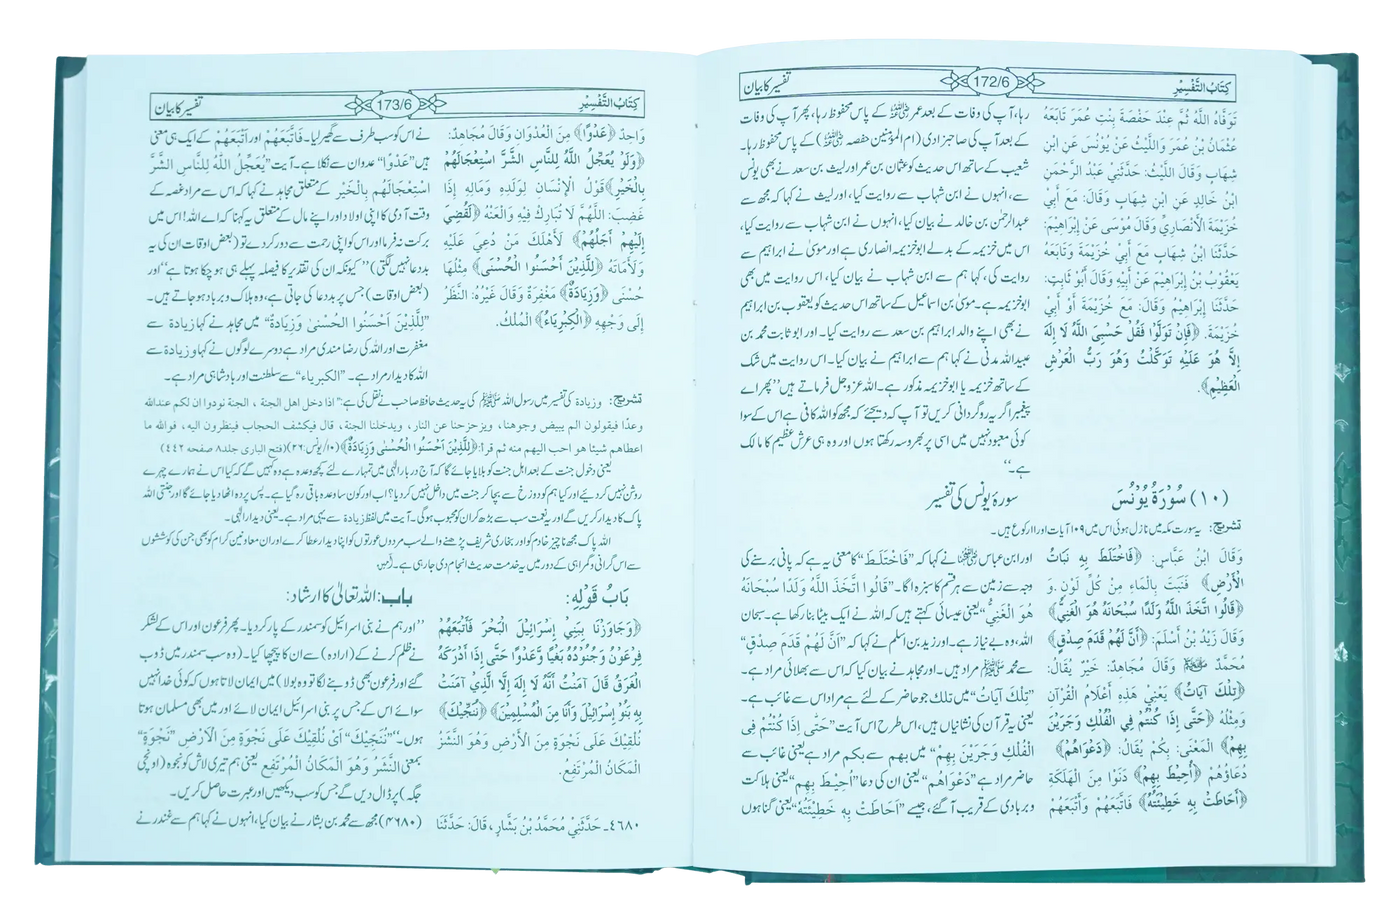 كِتَابُ التَّفْسِيْرِ 172/6 تفسیر کا بیان
تَوَفَّاهُ اللهُ ثُمَّ عِنْدَ حَفْصَةَ بِنْتِ عُمَرَ تَابَعَهُ
عُثْمَانُ بْنُ عُمَرَ وَاللَّيْثُ عَنْ يُونُسَ عَنِ ابْنِ
شِهَابٍ وَقَالَ اللَّيْثُ: حَدَّثَنِي عَبْدُ الرَّحْمَنِ
ابْنُ خَالِدٍ عَنِ ابْنِ شِهَابٍ وَقَالَ: مَعَ أَبِي
خُزَيْمَةَ الأَنْصَارِيِّ وَقَالَ مُوْسَى عَنْ إِبْرَاهِيْمَ:
حَدَّثَنَا ابْنُ شِهَابٍ مَعَ أَبِي خُزَيْمَةَ وَتَابَعَهُ
يَعْقُوْبُ بْنُ إِبْرَاهِيمَ عَنْ أَبِيهِ وَقَالَ أَبُو ثَابِتٍ:
حَدَّثَنَا إِبْرَاهِيْمُ وَقَالَ: مَعَ خُزَيْمَةَ أَوْ أَبِي
خُزَيْمَةَ. ﴿فَإِنْ تَوَلَّوْا فَقُلْ حَسْبِيَ اللهُ لَا إِلَهَ
إِلَّا هُوَ عَلَيْهِ تَوَكَّلْتُ وَهُوَ رَبُّ الْعَرْشِ
الْعَظِيْمِ﴾.
رہا، آپ کی وفات کے بعد عمر رضی اللہ عنہ کے پاس محفوظ رہا، پھر آپ کی وفات
کے بعد آپ کی صاحبزادی (ام المؤمنین حفصہ رضی اللہ عنہا) کے پاس محفوظ رہا۔
شعیب کے ساتھ اس حدیث کو عثمان بن عمر اور لیث بن سعد نے بھی یونس
سے، انہوں نے ابن شہاب سے روایت کیا، اور لیث نے کہا کہ مجھ سے
عبدالرحمٰن بن خالد نے بیان کیا، انہوں نے ابن شہاب سے روایت کیا،
اس میں خزیمہ کے بدلے ابوخزیمہ انصاری ہے اور موسیٰ نے ابراہیم سے
روایت کی، کہا ہم سے ابن شہاب نے بیان کیا، اس روایت میں بھی
ابوخزیمہ ہے۔ موسیٰ بن اسماعیل کے ساتھ اس حدیث کو یعقوب بن ابراہیم
نے بھی اپنے والد ابراہیم بن سعد سے روایت کیا۔ اور ابو ثابت محمد بن
عبیداللہ مدنی نے کہا ہم سے ابراہیم نے بیان کیا۔ اس روایت میں شک
کے ساتھ خزیمہ یا ابوخزیمہ مذکور ہے۔ اللہ عزوجل فرماتے ہیں ”پھر اے
پیغمبر اگر یہ روگردانی کریں تو آپ کہہ دیجئے کہ مجھ کو اللہ کافی ہے اس کے سوا
کوئی معبود نہیں میں اسی پر بھروسہ رکھتا ہوں اور وہ ہی عرش عظیم کا مالک
ہے۔“
(١٠) سُوْرَةُ يُوْنُسَ سورۂ یونس کی تفسیر
تشریح: یہ سورت مکہ میں نازل ہوئی اس میں ۱۰۹ آیات اور ۱۱ رکوع ہیں۔
وَقَالَ ابْنُ عَبَّاسٍ: ﴿فَاخْتَلَطَ بِهِ نَبَاتُ
الْأَرْضِ﴾ فَنَبَتَ بِالْمَاءِ مِنْ كُلِّ لَوْنٍ وَ
﴿قَالُوا اتَّخَذَ اللهُ وَلَدًا سُبْحَانَهُ هُوَ الْغَنِيُّ﴾
وَقَالَ زَيْدُ بْنُ أَسْلَمَ: ﴿أَنَّ لَهُمْ قَدَمَ صِدْقٍ﴾
مُحَمَّدٌ ﷺ وَقَالَ مُجَاهِدٌ: خَيْرٌ يُقَالُ:
﴿تِلْكَ آيَاتُ﴾ يَعْنِيْ هَذِهِ أَعْلَامُ الْقُرْآنِ
وَمِثْلُهُ ﴿حَتَّى إِذَا كُنْتُمْ فِي الْفُلْكِ وَجَرَيْنَ
بِهِمْ﴾ الْمَعْنَى: بِكُمْ يُقَالُ: ﴿دَعْوَاهُمْ﴾
دُعَاؤُهُمْ ﴿أُحِيْطَ بِهِمْ﴾ دَنَوْا مِنَ الْهَلَكَةِ
﴿أَحَاطَتْ بِهِ خَطِيْئَتُهُ﴾ فَاتَّبَعَهُمْ وَأَتْبَعَهُمْ
اور ابن عباس رضی اللہ عنہما نے کہا کہ ”فَاخْتَلَطَ“ کا معنی یہ ہے کہ پانی برسنے کی
وجہ سے زمین سے ہر قسم کا سبزہ اگا۔ ”قَالُوا اتَّخَذَ اللهُ وَلَدًا سُبْحَانَهُ
هُوَ الْغَنِيُّ“ یعنی عیسائی کہتے ہیں کہ اللہ نے ایک بیٹا بنا رکھا ہے۔ سبحان
اللہ، وہ بے نیاز ہے۔ اور زید بن اسلم نے کہا کہ ”اَنَّ لَهُمْ قَدَمَ صِدْقٍ“
سے محمد ﷺ مراد ہیں۔ اور مجاہد نے بیان کیا کہ اس سے بھلائی مراد ہے۔
”تِلْكَ آيَاتُ“ میں تلك جو حاضر کے لئے ہے مراد اس سے غائب ہے۔
یعنی یہ قرآن کی نشانیاں ہیں، اس طرح اس آیت ”حَتّٰى اِذَا كُنْتُمْ فِى
الْفُلْكِ وَجَرَيْنَ بِهِمْ“ میں بهم سے بكم مراد ہے یعنی غائب سے
حاضر مراد ہے ”دَعْوَاهُم“ یعنی ان کی دعا ”اُحِيْطَ بِهِم“ یعنی ہلاکت
و بربادی کے قریب آ گئے، جیسے ”اَحَاطَتْ بِهِ خَطِيْئَتُهُ“ یعنی گناہوں
كِتَابُ التَّفْسِيْرِ 173/6 تفسیر کا بیان
وَاحِدٌ ﴿عَدْوًا﴾ مِنَ الْعُدْوَانِ وَقَالَ مُجَاهِدٌ:
﴿وَلَوْ يُعَجِّلُ اللهُ لِلنَّاسِ الشَّرَّ اسْتِعْجَالَهُمْ
بِالْخَيْرِ﴾ قَوْلُ الْإِنْسَانِ لِوَلَدِهِ وَمَالِهِ إِذَا
غَضِبَ: اللَّهُمَّ لَا تُبَارِكْ فِيْهِ وَالْعَنْهُ ﴿لَقُضِيَ
إِلَيْهِمْ أَجَلُهُمْ﴾ لَأُهْلِكَ مَنْ دُعِيَ عَلَيْهِ
وَلَأَمَاتَهُ ﴿لِلَّذِيْنَ أَحْسَنُوا الْحُسْنَى﴾ مِثْلُهَا
حُسْنَى ﴿وَزِيَادَةٌ﴾ مَغْفِرَةٌ وَقَالَ غَيْرُهُ: النَّظَرُ
إِلَى وَجْهِهِ ﴿الْكِبْرِيَاءُ﴾ الْمُلْكُ.
نے اس کو سب طرف سے گھیر لیا۔ فَاتَّبَعَهُمْ اور اَتْبَعَهُمْ کے ایک ہی معنی
ہیں ”عَدْوًا“ عدوان سے نکلا ہے۔ آیت ”يُعَجِّلُ اللهُ لِلنَّاسِ الشَّرَّ
اسْتِعْجَالَهُم بِالْخَيْرِ“ کے متعلق مجاہد نے کہا کہ اس سے مراد غصہ کے
وقت آدمی کا اپنی اولاد اور اپنے مال کے متعلق یہ کہنا کہ اے اللہ! اس میں
برکت نہ فرما اور اس کو اپنی رحمت سے دور کر دے تو (بعض اوقات ان کی یہ
بددعا نہیں لگتی)“ کیونکہ ان کی تقدیر کا فیصلہ پہلے ہی ہو چکا ہوتا ہے“ اور
(بعض اوقات) جس پر بددعا کی جاتی ہے، وہ ہلاک و برباد ہو جاتے ہیں۔
”لِلَّذِيْنَ اَحْسَنُوا الحُسْنىٰ وَزِيَادَةٌ“ میں مجاہد نے کہا زيادة سے
مغفرت اور اللہ کی رضا مندی مراد ہے دوسرے لوگوں نے کہا وزيادة سے
اللہ کا دیدار مراد ہے۔ ”الكبرياء“ سے سلطنت اور بادشاہی مراد ہے۔
تشریح: وزیادة کی تفسیر میں رسول اللہ ﷺ کی یہ حدیث حافظ صاحب نے نقل کی ہے: ”اذا دخل اهل الجنة ، الجنة نودوا ان لكم عندالله
وعدًا فيقولون الم يبيض وجوهنا، ويزحزحنا عن النار، ويدخلنا الجنة، قال فيكشف الحجاب فينظرون اليه، فوالله ما
اعطاهم شيئا هو احب اليهم منه ثم قرا: ﴿لِلَّذِيْنَ اَحْسَنُوا الْحُسْنىٰ وَزِيَادَةٌ﴾ (١٠/یونس:٢٦) (فتح الباری جلد ٨ صفحہ ٤٤٢)
یعنی دخول جنت کے بعد اہل جنت کو بلایا جائے گا کہ آج دربار الٰہی میں تمہارے لئے کچھ وعدہ ہے وہ کہیں گے کہ کیا اس نے ہمارے چہرے
روشن نہیں کر دئیے اور کیا ہم کو دوزخ سے بچا کر جنت میں داخل نہیں کر دیا؟ اب اور کون سا وعدہ باقی رہ گیا ہے۔ پس پردہ اٹھا دیا جائے گا اور جنتی اللہ
پاک کا دیدار کریں گے اور یہ نعمت سب سے بڑھ کر ان کو محبوب ہو گی۔ آیت میں لفظ زیادة سے یہی مراد ہے۔ یعنی دیدار الٰہی۔
اللہ پاک مجھ ناچیز خادم کو اور بخاری شریف پڑھنے والے سب مردوں عورتوں کو اپنا دیدار عطا کرے اور ان معاونین کرام کو بھی جن کی کوششوں
سے اس گرانی و گمراہی کے دور میں یہ خدمت حدیث انجام دی جا رہی ہے۔ آمین
بَابُ قَوْلِهِ: باب: اللہ تعالیٰ کا ارشاد:
﴿وَجَاوَزْنَا بِبَنِيْ إِسْرَائِيْلَ الْبَحْرَ فَأَتْبَعَهُمْ
فِرْعَوْنُ وَجُنُودُهُ بَغْيًا وَّعَدْوًا حَتَّى إِذَا أَدْرَكَهُ
الْغَرَقُ قَالَ آمَنْتُ أَنَّهُ لَا إِلَهَ إِلَّا الَّذِيْ آمَنَتْ
بِهِ بَنُوْ إِسْرَائِيْلَ وَأَنَا مِنَ الْمُسْلِمِيْنَ﴾ ﴿نُنَجِّيْكَ﴾
نُلْقِيْكَ عَلَى نَجْوَةٍ مِنَ الْأَرْضِ وَهُوَ النَّشَزُ
الْمَكَانُ الْمُرْتَفِعُ.
”اور ہم نے بنی اسرائیل کو سمندر کے پار کر دیا۔ پھر فرعون اور اس کے لشکر
نے ظلم کرنے کے (ارادہ) سے ان کا پیچھا کیا۔ (وہ سب سمندر میں ڈوب
گئے اور فرعون بھی ڈوبنے لگا تو وہ بولا) میں ایمان لاتا ہوں کہ کوئی خدا نہیں
سوائے اس کے جس پر بنی اسرائیل ایمان لائے اور میں بھی مسلمان ہوتا
ہوں۔“ ”نُنَجِّيْكَ“ اَىْ نُلْقِيْكَ عَلٰى نَجْوَةٍ مِنَ الْاَرْضِ ”نَجْوَةٍ“
بمعنی النَّشَزُ وَهُوَ الْمَكَانُ الْمُرْتَفِعُ یعنی ہم تیری لاش کو نجوہ (اونچی
جگہ) پر ڈال دیں گے جس کو سب دیکھیں اور عبرت حاصل کریں۔
٤٦٨٠۔ حَدَّثَنِيْ مُحَمَّدُ بْنُ بَشَّارٍ، قَالَ: حَدَّثَنَا (٤٦٨٠) مجھ سے محمد بن بشار نے بیان کیا، انہوں نے کہا ہم سے غندر نے